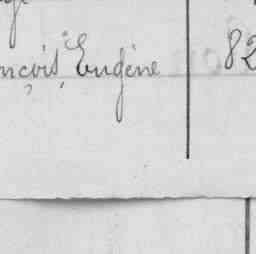 ge
nçois Eugène 82